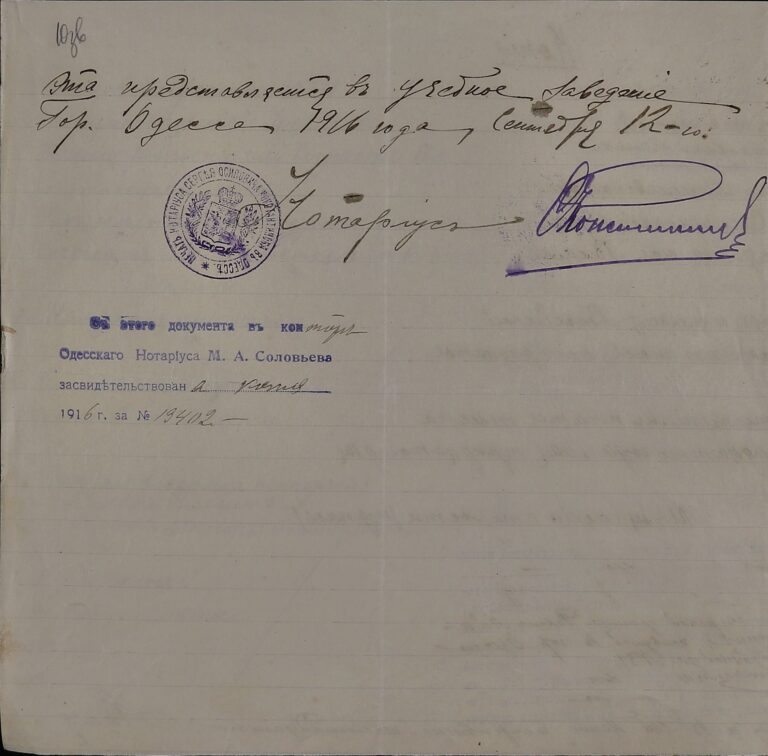 10 зв
Эта представляется въ учебное заведеніе
Гор. Одесса 1916 года, Сентября 12-го.
ПЕЧАТЬ НОТАРІУСА СЕРГѢЯ ОСИПОВИЧА ВЪ ОДЕССѢ
Нотаріусъ
Съ этого документа въ конторѣ
Одесскаго Нотаріуса М. А. Соловьева
засвидѣтельствована копія
1916 г. за № 19402